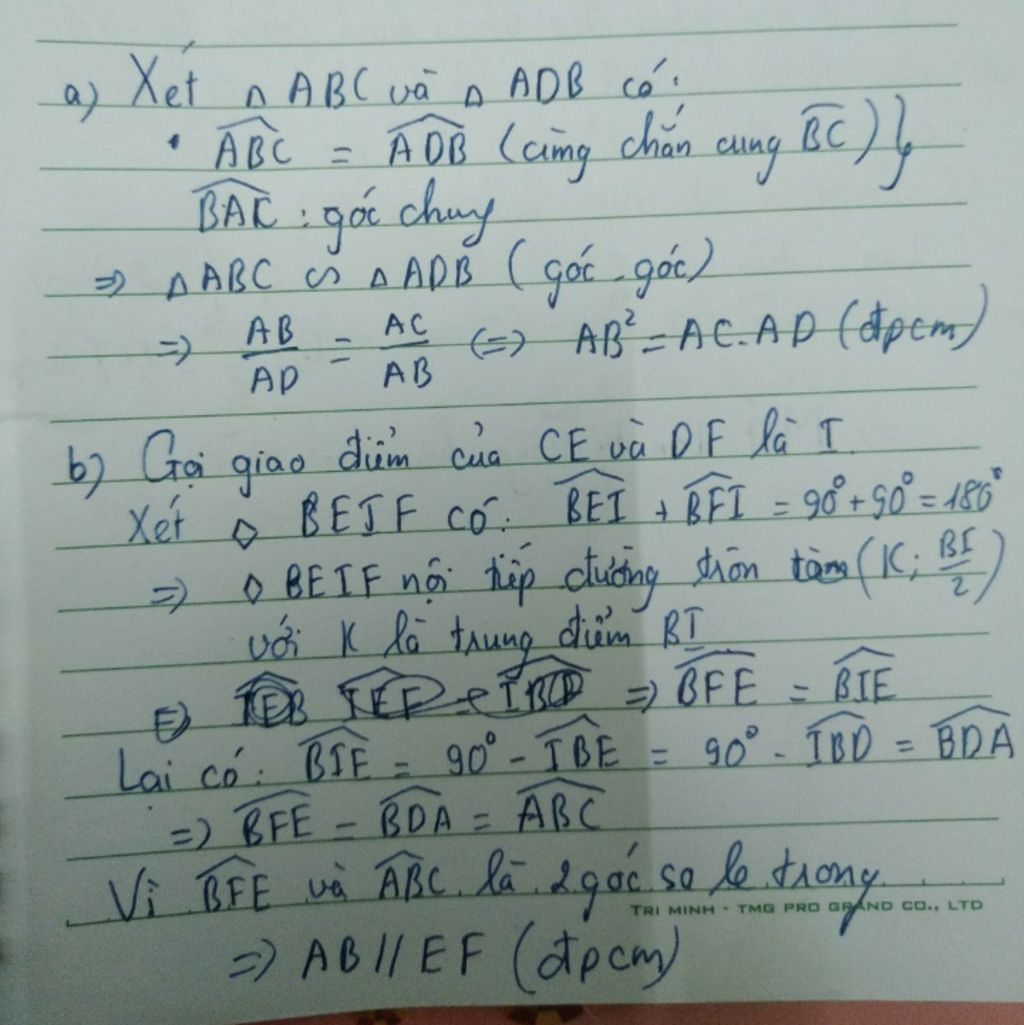 a) Xét △ ABC và △ ADB có:
• \widehat{ABC} = \widehat{ADB} (cùng chắn cung \widehat{BC}) }
\widehat{BAC} : góc chung
⇒ △ ABC ∽ △ ADB (góc - góc)
⇒ \frac{AB}{AD} = \frac{AC}{AB} (=) AB² = AC.AD (đpcm)
b) Gọi giao điểm của CE và DF là I.
Xét ◇ BEIF có: \widehat{BEI} + \widehat{BFI} = 90° + 90° = 180°
⇒ ◇ BEIF nội tiếp đường tròn tâm (K; \frac{BI}{2})
với K là trung điểm BI
⇒ \widehat{BFE} = \widehat{BIE}
Lại có: \widehat{BIE} = 90° - \widehat{IBE} = 90° - \widehat{IBD} = \widehat{BDA}
⇒ \widehat{BFE} = \widehat{BDA} = \widehat{ABC}
Vì \widehat{BFE} và \widehat{ABC} là 2 góc so le trong
TRI MINH - TMG PRO GRAND CO., LTD
⇒ AB // EF (đpcm)